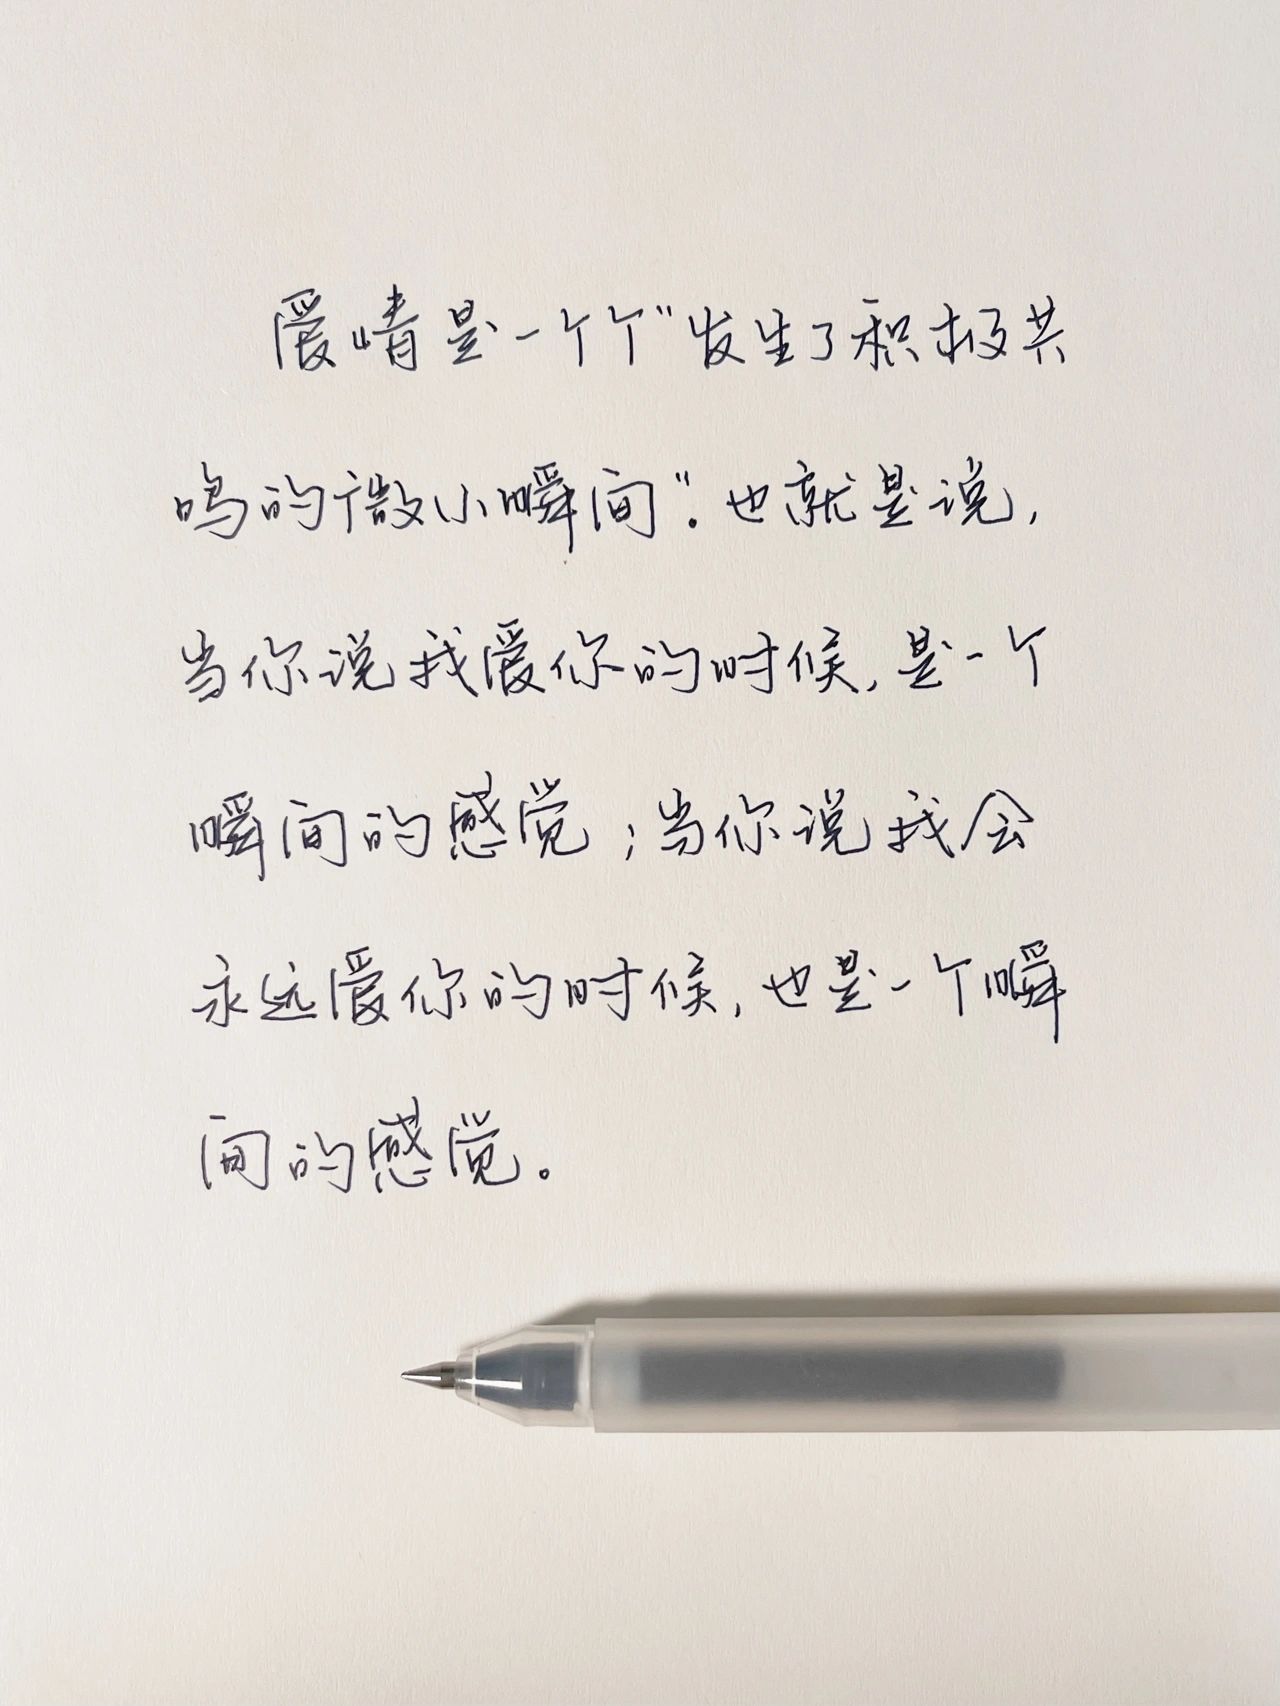 爱情是一个个“发生了积极共
鸣的微小瞬间”。也就是说，
当你说我爱你的时候，是一个
瞬间的感觉；当你说我会
永远爱你的时候，也是一个瞬
间的感觉。